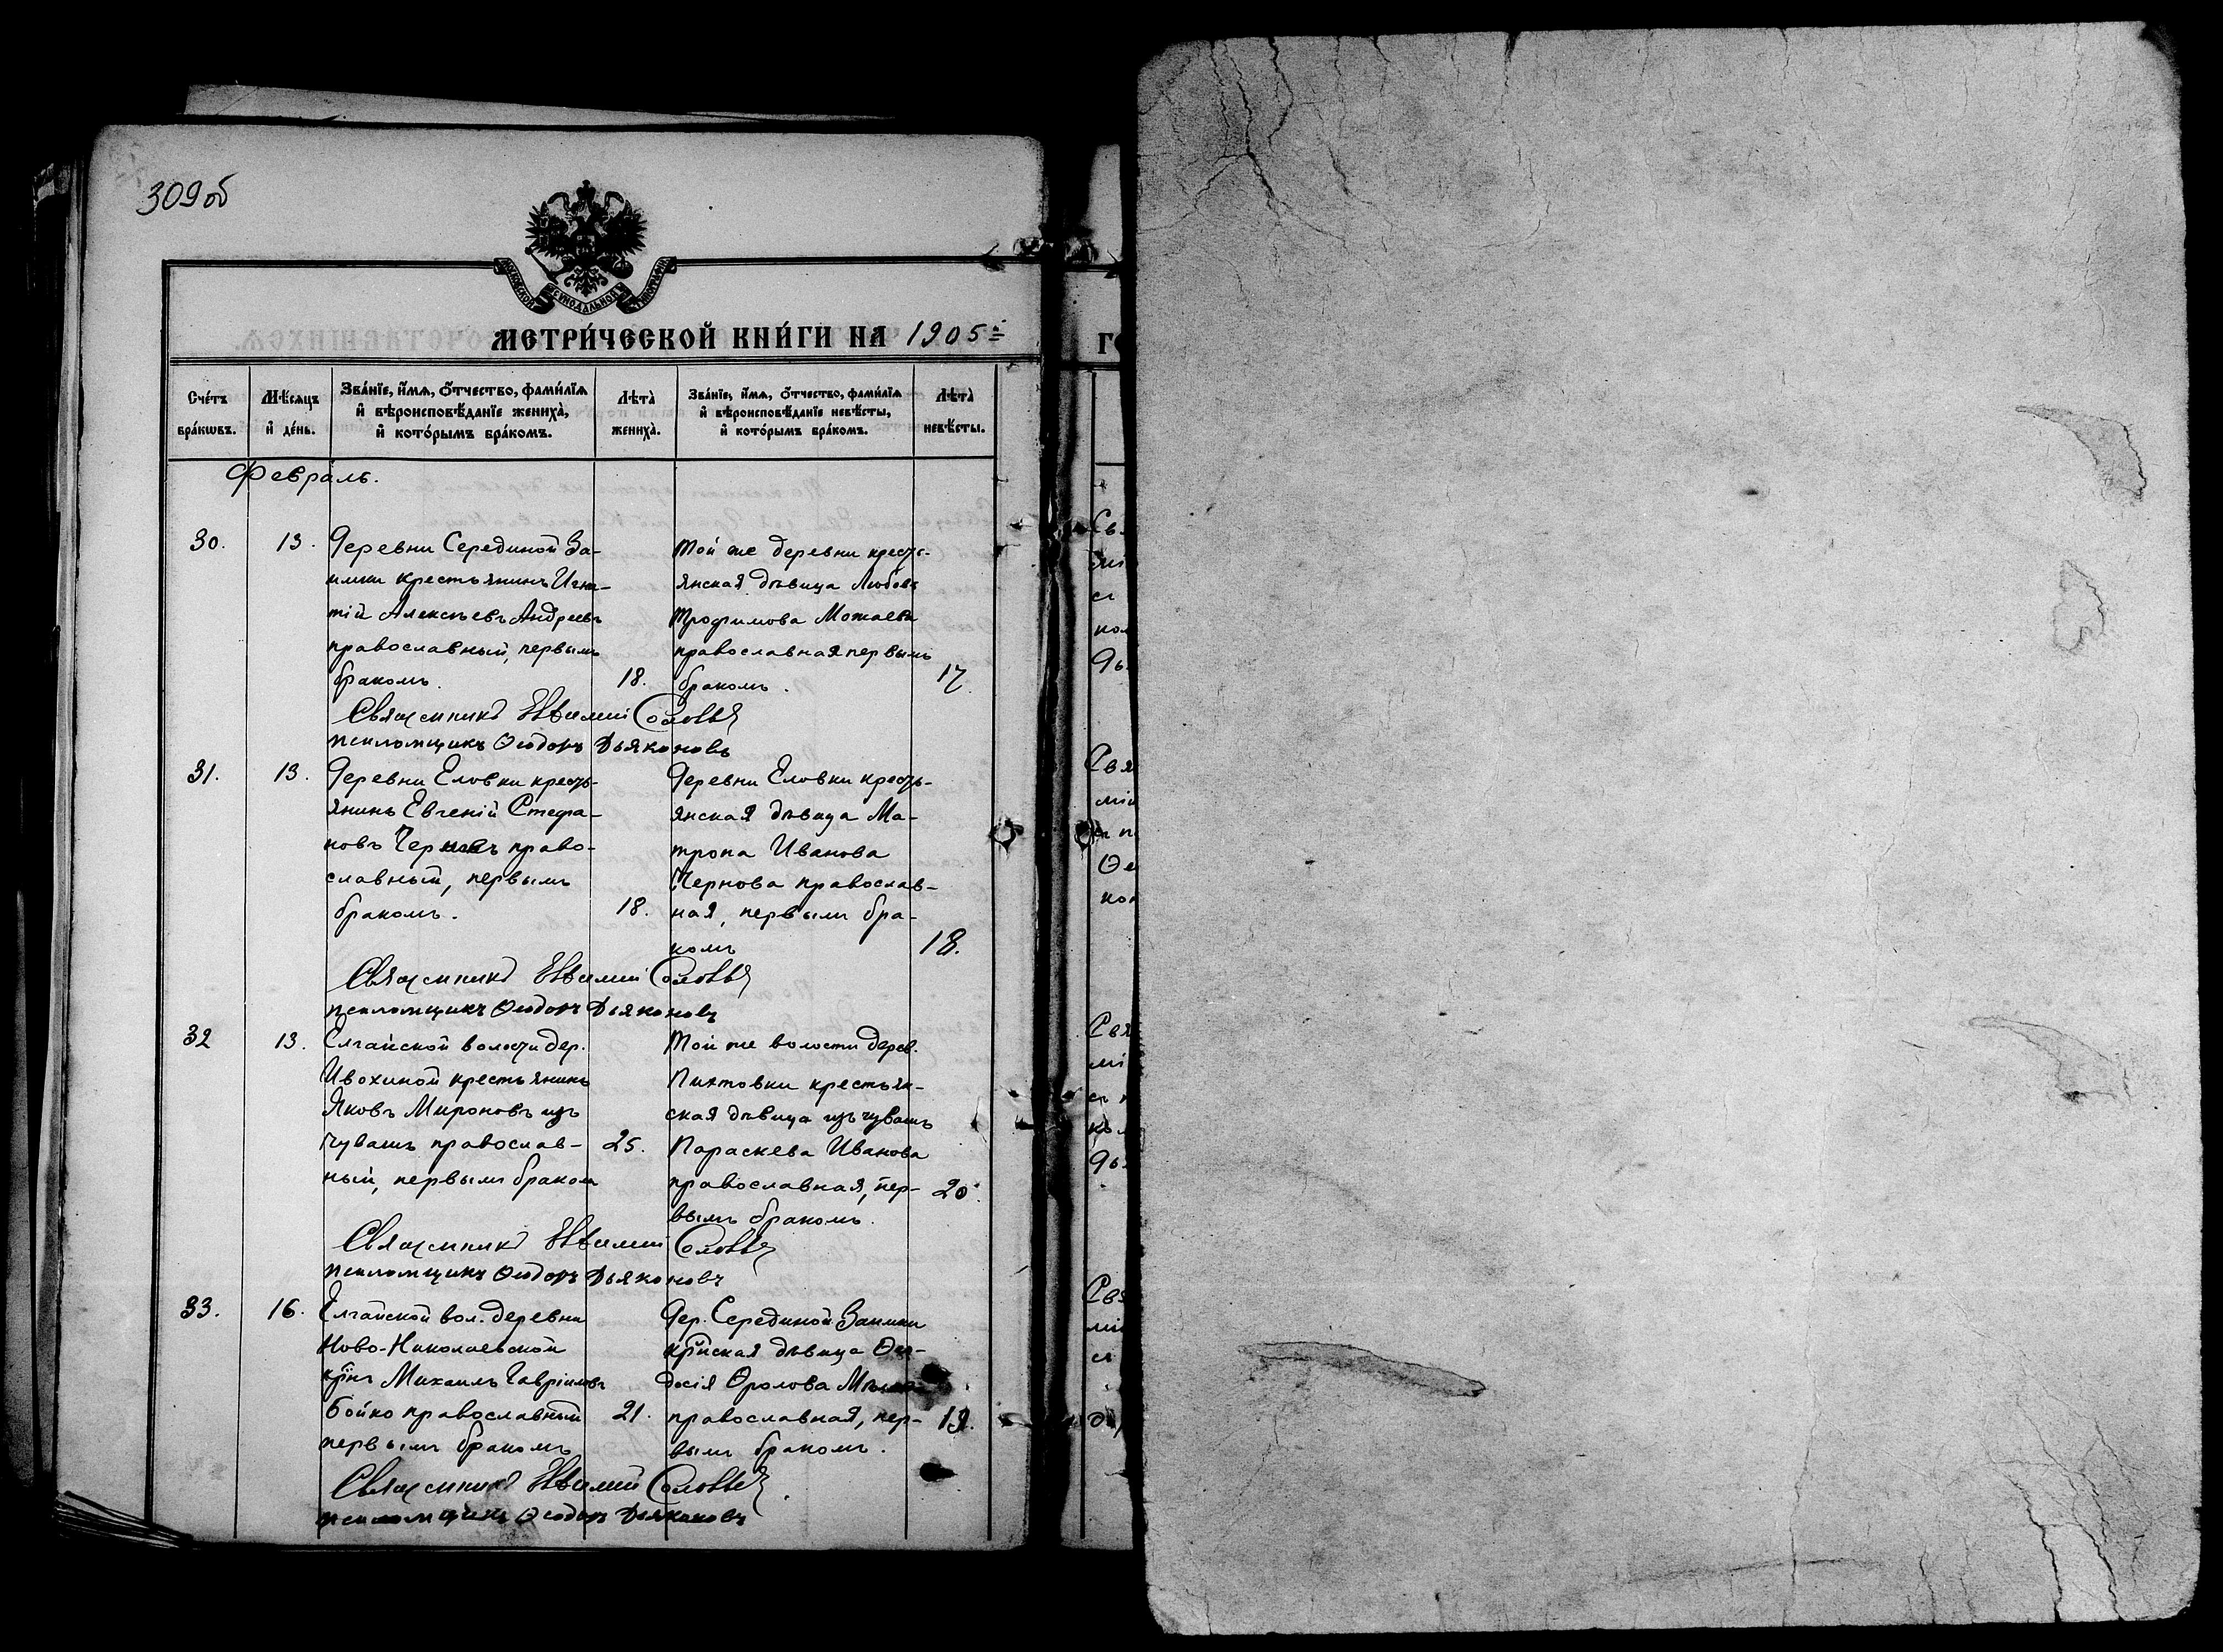 309 об
МОСКОВСКОЙ СѴНОДАЛЬНОЙ ТИПОГРАФІИ
МЕТРИ́ЧЕСКОЙ КНИ́ГИ НА 1905 г.
Сче́тъ бра́кωвъ.
Мѣ́сяцъ и҆ де́нь.
Зва́нїе, и҆́мѧ, ѻ҆́тчество, фами́лїѧ и҆ вѣроисповѣ́данїе женихà, и҆ кото́рымъ бра́комъ.
Лѣтà женихà.
Зва́нїе, и҆́мѧ, ѻ҆́тчество, фами́лїѧ и҆ вѣроисповѣ́данїе невѣ́сты, и҆ кото́рымъ бра́комъ.
Лѣтà невѣ́сты.
Февраль.
30. 13.
Деревни Серединой За-
имки крестьянинъ Игна-
тій Алексѣевъ Андреевъ
православный, первымъ
бракомъ. 18.
Той же деревни кресть-
янская дѣвица Любовь
Трофимова Можаева
православная первымъ
бракомъ. 17.
Священникъ Евѳимій Соловье
псаломщикъ Ѳеодоръ Дьяконовъ
31. 13.
Деревни Еловки кресть-
янинъ Евгеній Стефа-
новъ Черновъ право-
славный, первымъ
бракомъ. 18.
Деревни Еловки кресть-
янская дѣвица Ма-
трона Иванова
Чернова православ-
ная, первымъ бра-
комъ 18.
Священникъ Евѳимій Соловье
псаломщикъ Ѳеодоръ Дьяконовъ
32 13.
Елгайской волости дер.
Ивохиной крестьянинъ
Яковъ Мироновъ изъ
чувашъ православ- 25.
ный, первымъ бракомъ
Той же волости дерев.
Пихтовки крестьян-
ская дѣвица изъ чувашъ
Параскева Иванова
православная, пер- 20.
вымъ бракомъ.
Священникъ Евѳимій Соловье
псаломщикъ Ѳеодоръ Дьяконовъ
33. 16.
Елгайской вол. деревни
Ново-Николаевской
кр̃нъ Михаилъ Гавріиловъ
Бойко православный 21.
первымъ бракомъ
Дер. Серединой Заимки
кр̃нская дѣвица Ѳео-
досія Фролова
православная, пер- 19.
вымъ бракомъ.
Священникъ Евѳимій Соловье
псаломщикъ Ѳеодоръ Дьяконовъ